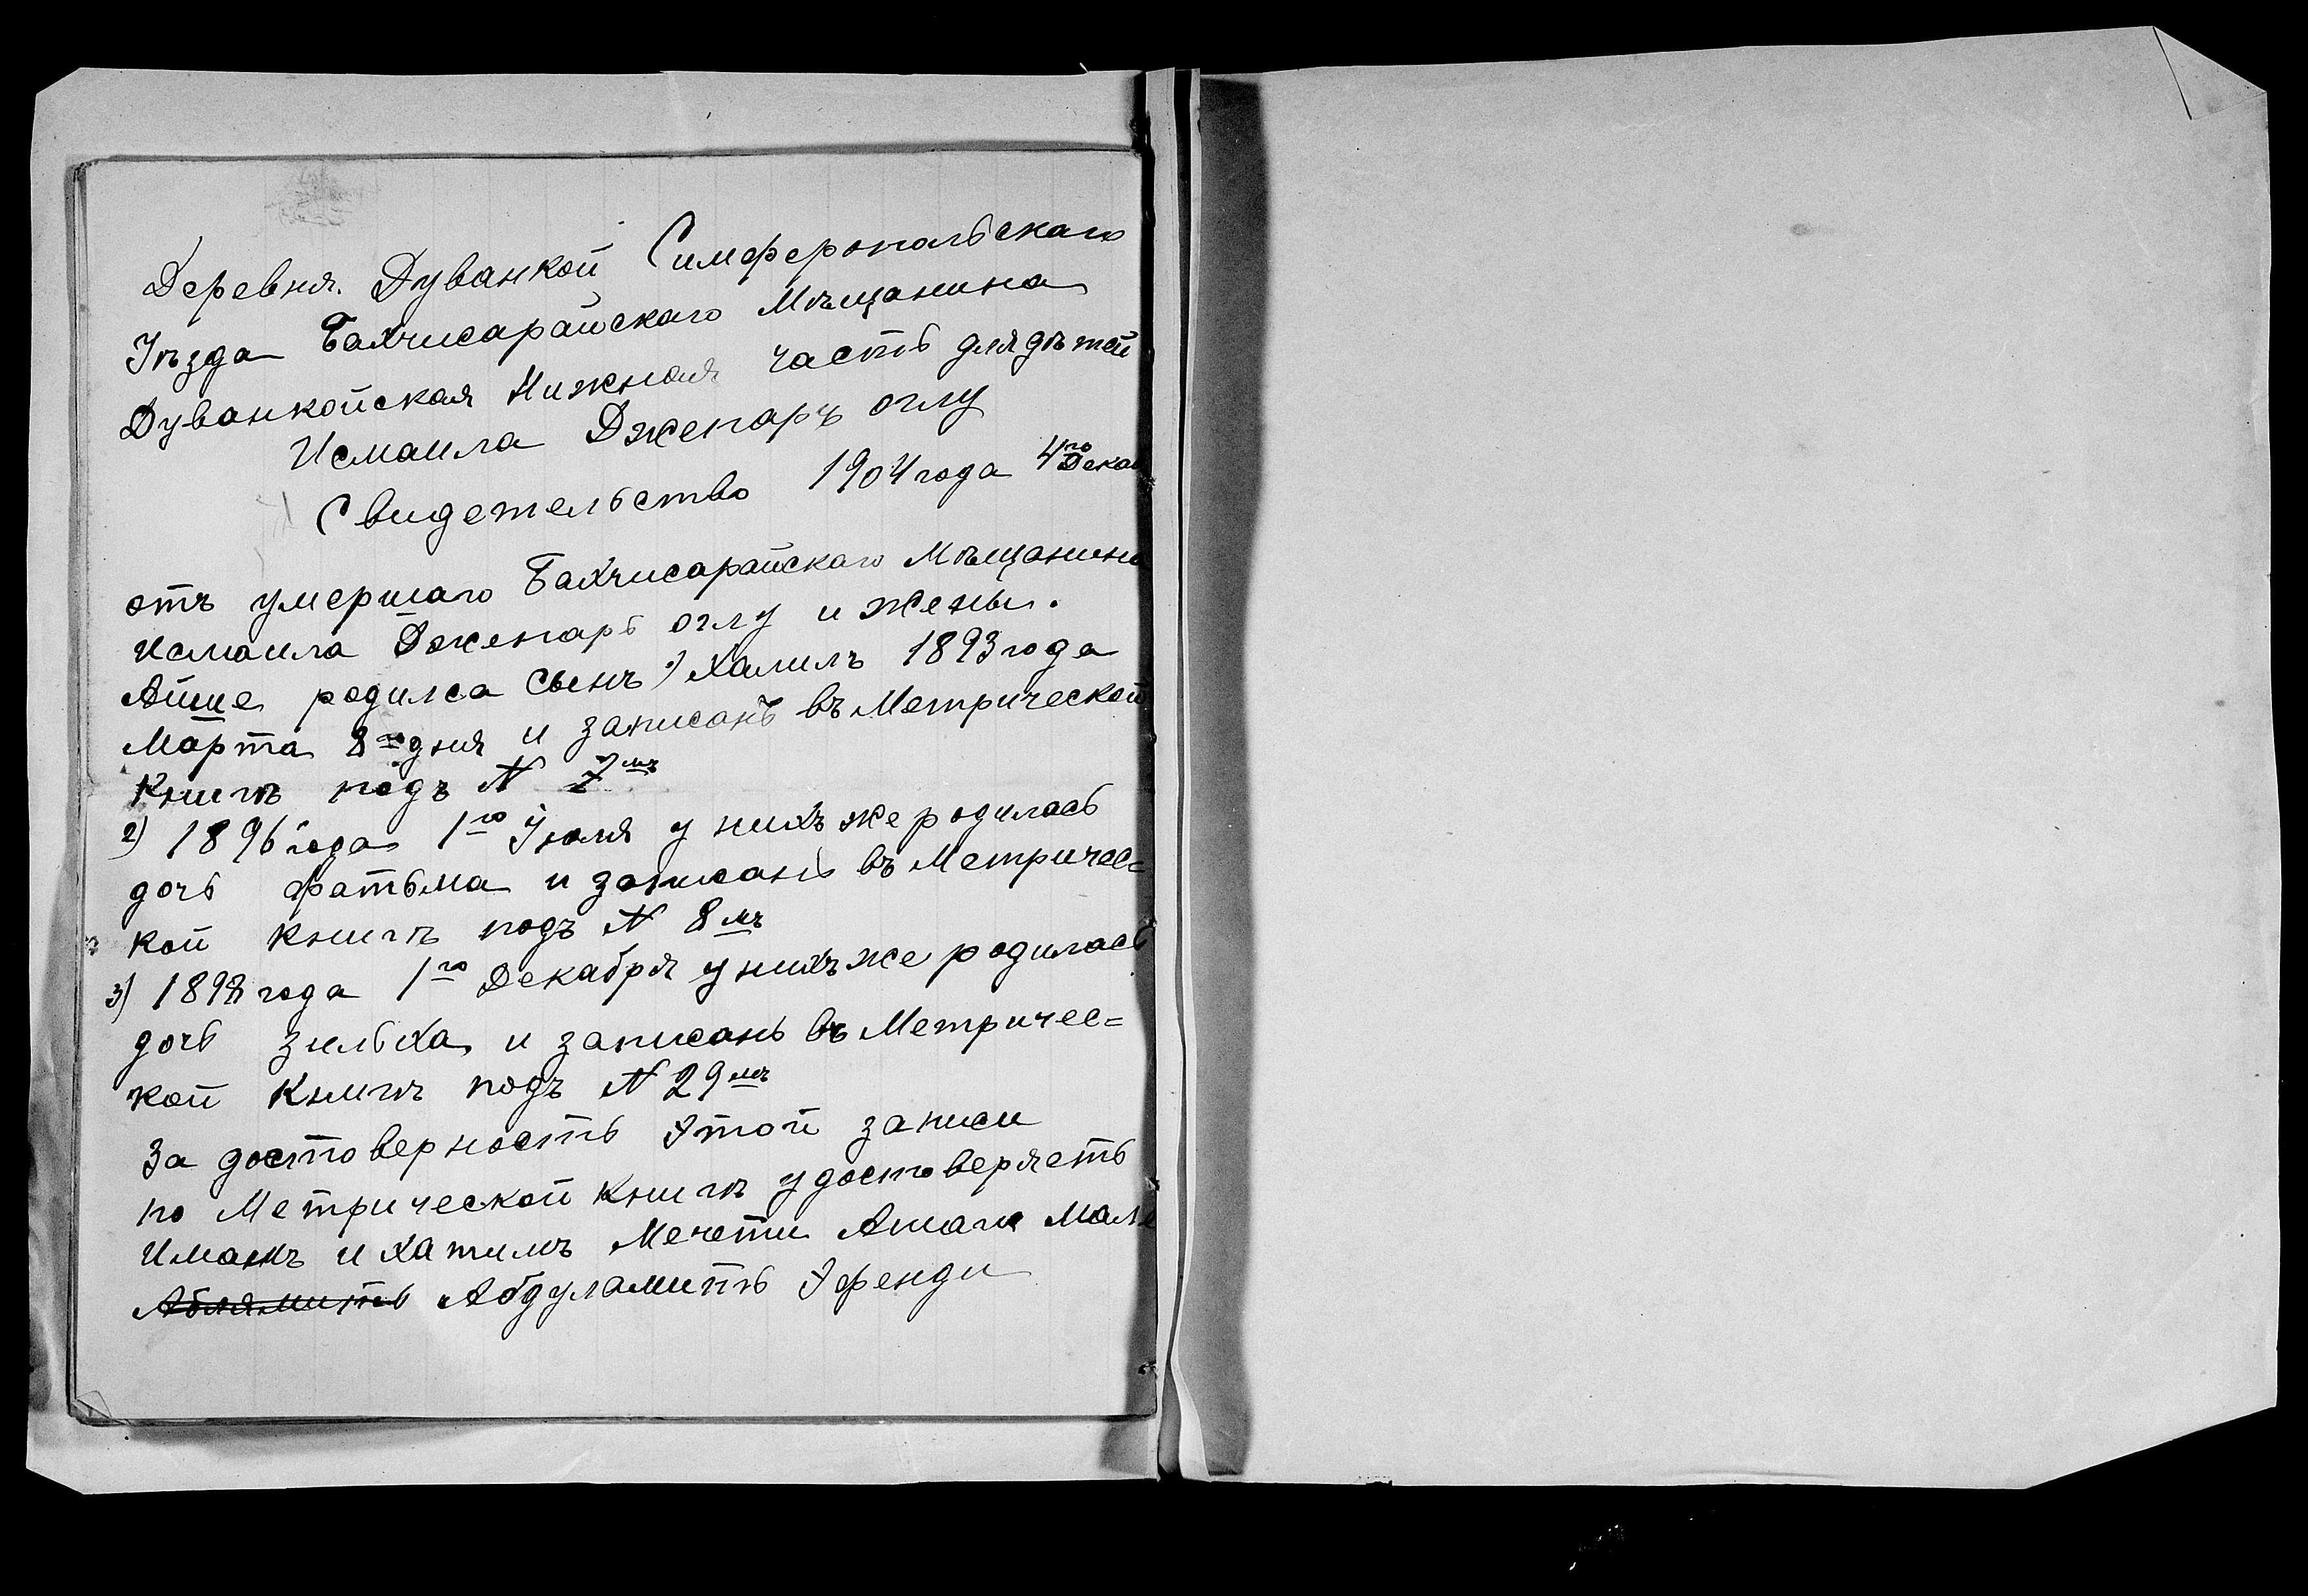 Деревня. Дуванкой Симферопальскаго
Уѣзда Бахчисарайскаго Мѣщанина
Дуванкойская Нижная часть для дѣтей
Исмаила Джепаръ оглу
Свидетельство 1904 года 4го Декаб
отъ умершаго Бахчисарайскаго Мѣщанина
Исмаила Джепарь оглу и жены.
Айше родилса Сынъ 1) Халилъ 1893 года
Марта 8го дня и записанъ въ Метрической
Книгѣ подъ N 7мъ
2) 1896 года 1го Іюля у нихъ же родилась
дочь Фатьма и записань въ Метричес=
кой книгѣ подъ N 8мъ
3) 1898 года 1го Декабря у нихъ же родилась
дочь Зильха и записань въ Метричес=
кой Книгѣ подъ N 29мъ
За достоверность Этой записи
по Метрической книгѣ удостоверяеть
Имамъ и хатипъ Мечети Ашага Мале
Аблямить Абдуламить Эфенди